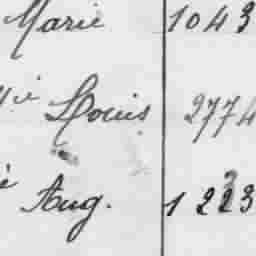 Marie 1043
Louis 2774
Aug. 1223